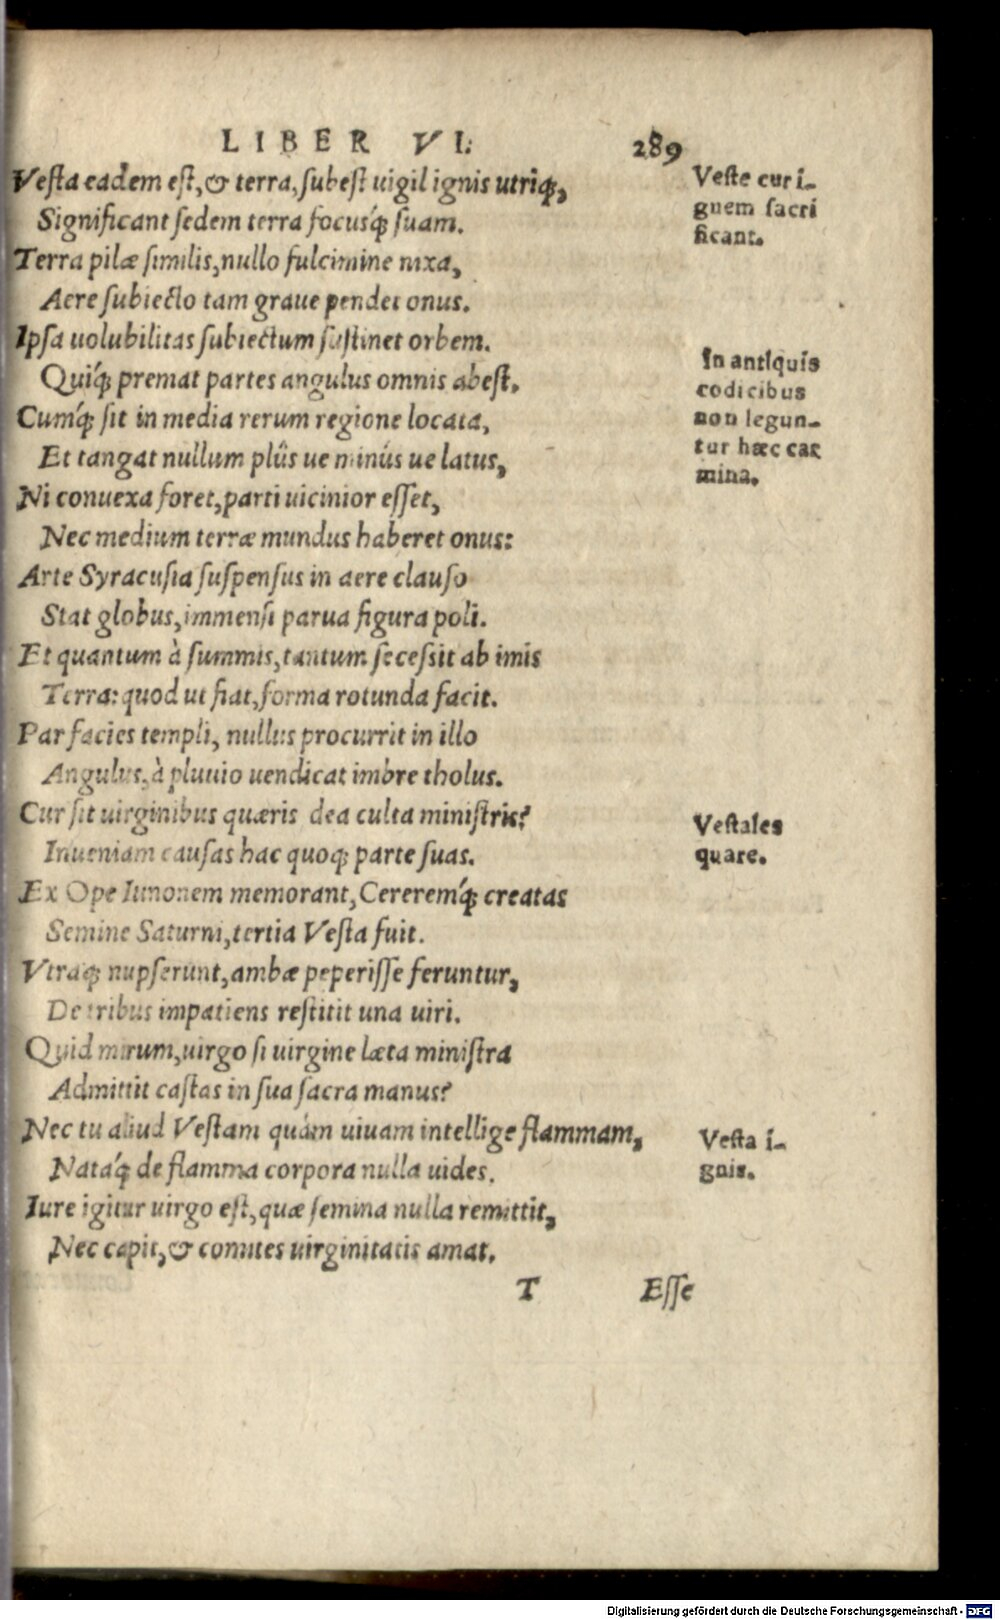 LIBER VI.
289
Vesta eadem est, & terra, subest uigil ignis utriq;,
Significant sedem terra focusq́; suam.
Terra pilæ similis, nullo fulcimine nixa,
Aere subiecto tam graue pendet onus.
Ipsa uolubilitas subiectum sustinet orbem.
Quiq́; premat partes angulus omnis abest.
Cumq́; sit in media rerum regione locata,
Et tangat nullum plûs ue minús ue latus,
Ni conuexa foret, parti uicinior esset,
Nec medium terræ mundus haberet onus:
Arte Syracusia suspensus in aere clauso
Stat globus, immensi parua figura poli.
Et quantum à summis, tantum secessit ab imis
Terra: quod ut fiat, forma rotunda facit.
Par facies templi, nullus procurrit in illo
Angulus, à pluuio uendicat imbre tholus.
Cur sit uirginibus quæris dea culta ministris?
Inueniam causas hac quoq; parte suas.
Ex Ope Iunonem memorant, Cereremq́; creatas
Semine Saturni, tertia Vesta fuit.
Vtraq; nupserunt, ambæ peperisse feruntur,
De tribus impatiens restitit una uiri.
Quid mirum, uirgo si uirgine læta ministra
Admittit castas in sua sacra manus?
Nec tu aliud Vestam quàm uiuam intellige flammam,
Nataq́; de flamma corpora nulla uides.
Iure igitur uirgo est, quæ semina nulla remittit,
Nec capit, & comites uirginitatis amat.
T Esse
Veste cur i-
gnem sacri
ficant.
In antiquis
codicibus
non legun-
tur hæc car
mina.
Vestales
quare.
Vesta i-
gnis.
Digitalisierung gefördert durch die Deutsche Forschungsgemeinschaft - DFG